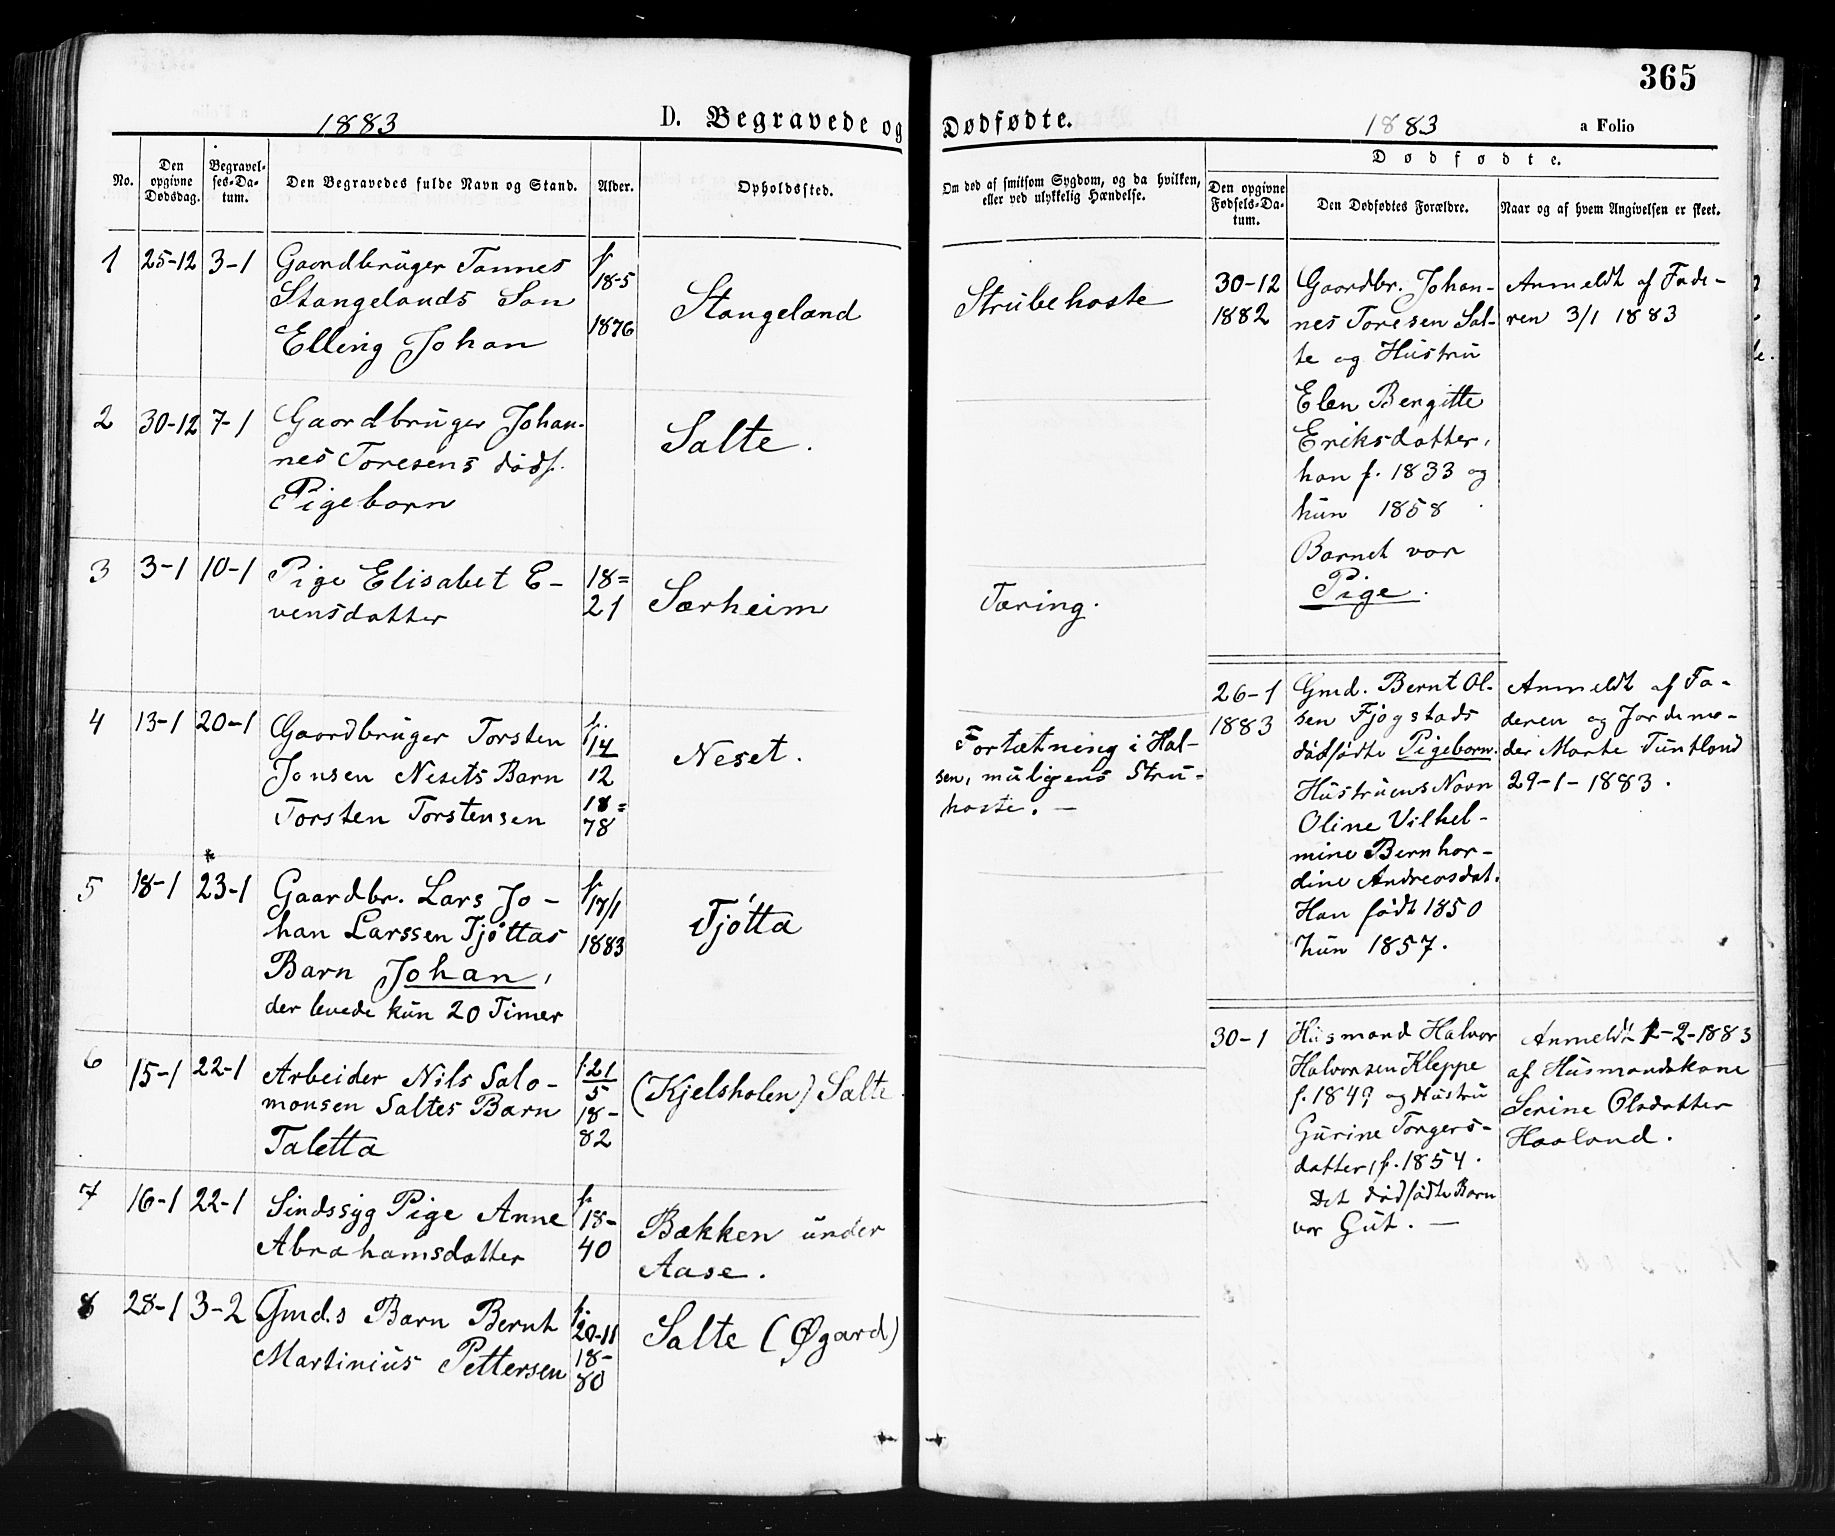 365
1883
D. Begravede og Dødfødte.
1883
a Folio
No.
Den opgivne Dødsdag.
Begravel-
ses-Da-
tum.
Den Begravedes fulde Navn og Stand.
Alder.
Opholdssted.
Om død af smitsom Sygdom, og da hvilken,
eller ved ulykkelig Hændelse.
Dødfødte.
Den opgivne
Fødsels-Da-
tum.
Den Dødfødtes Forældre.
Naar og af hvem Angivelsen er skeet.
1 25-12 3-1 Gaardbruger Tønnes f. 18-5
Stangelands Søn 1876 Stangeland Strubehoste
Elling Johan
2 30-12 7-1 Gaardbruger Johan-
nes Toresens dødf. Salte.
Pigebarn
3 3-1 10-1 Pige Elisabet E- 18=
vensdatter 21 Særheim Tæring.
4 13-1 20-1 Gaardbruger Torsten f. 14
Jonsen Nesets Barn 12 Neset. Fortætning i Hal-
Torsten Torstensen 18= sen, muligens Stru-
78 hoste. —
*
5 18-1 23-1 Gaardbr. Lars Jo- f. 17/1
han Larssen Tjøttas 1883 Tjøtta
Barn Johan,
der levede kun 20 Timer
6 15-1 22-1 Arbeider Nils Salo- f. 21
monsen Saltes Barn 5 (Kjelsholen) Salte
Taletta 18-
82
7 16-1 22-1 Sindssyg Pige Anne f. 18-
Abrahamsdatter 40 Bækken under
Aase.
8 28-1 3-2 Gmd.s Barn Bernt f. 20-11
Martinius Pettersen 18- Salte (Øgard)
80
30-12 Gaardbr. Johan- Anmeldt af Fade-
1882 nes Toresen Sal- ren 3/1 1883
te og Hustru
Elen Bergitte
Eriksdatter,
han f. 1833 og
hun 1858
Barnet var
Pige.
26-1 Gmd. Bernt Ol- Anmeldt af Fa-
1883 sen Fjogstads deren og Jordemo-
dødfødte Pigebarn. der Marte Tuntland
Hustruens Navn 29-1-1883.
Oline Vilhel-
mine Bernhar-
dine Andreasdat.
Han født 1850
hun 1857.
30-1 Husmand Halvor Anmeldt 1-2-1883
Halvorsen Kleppe af Husmandskone
f. 1849 og Hustru Serine Olsdatter
Gurine Torgers- Haaland.
datter, f. 1854.
Det dødfødte Barn
var Gut. —